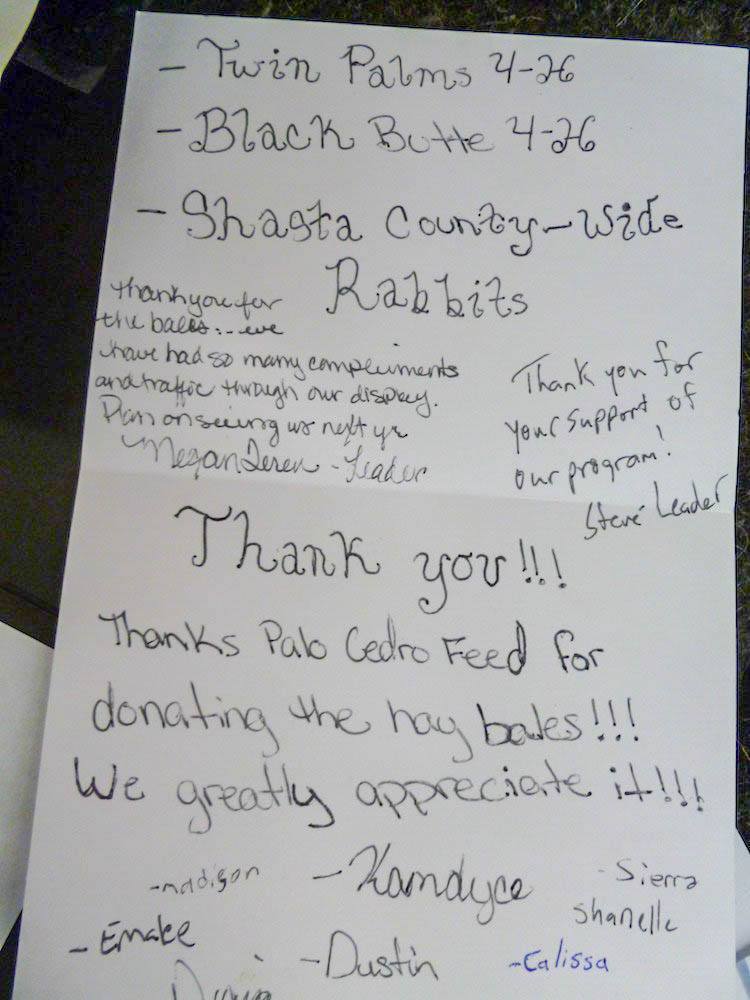 - Twin Palms 4-26
- Black Butte 4-26
- Shasta County-Wide
Rabbits
thank you for
the bales... we
have had so many compliments
and traffic through our display.
Plan on seeing us next yr
Megan - Leader
Thank you for
your support of
our program!
Steve Leader
Thank you!!!
Thanks Palo Cedro Feed for
donating the hay bales!!!
We greatly appreciate it!!!
-madison
- Kamdyce
- Sierra
Shanelle
- Emalee
- Dustin
- Calissa